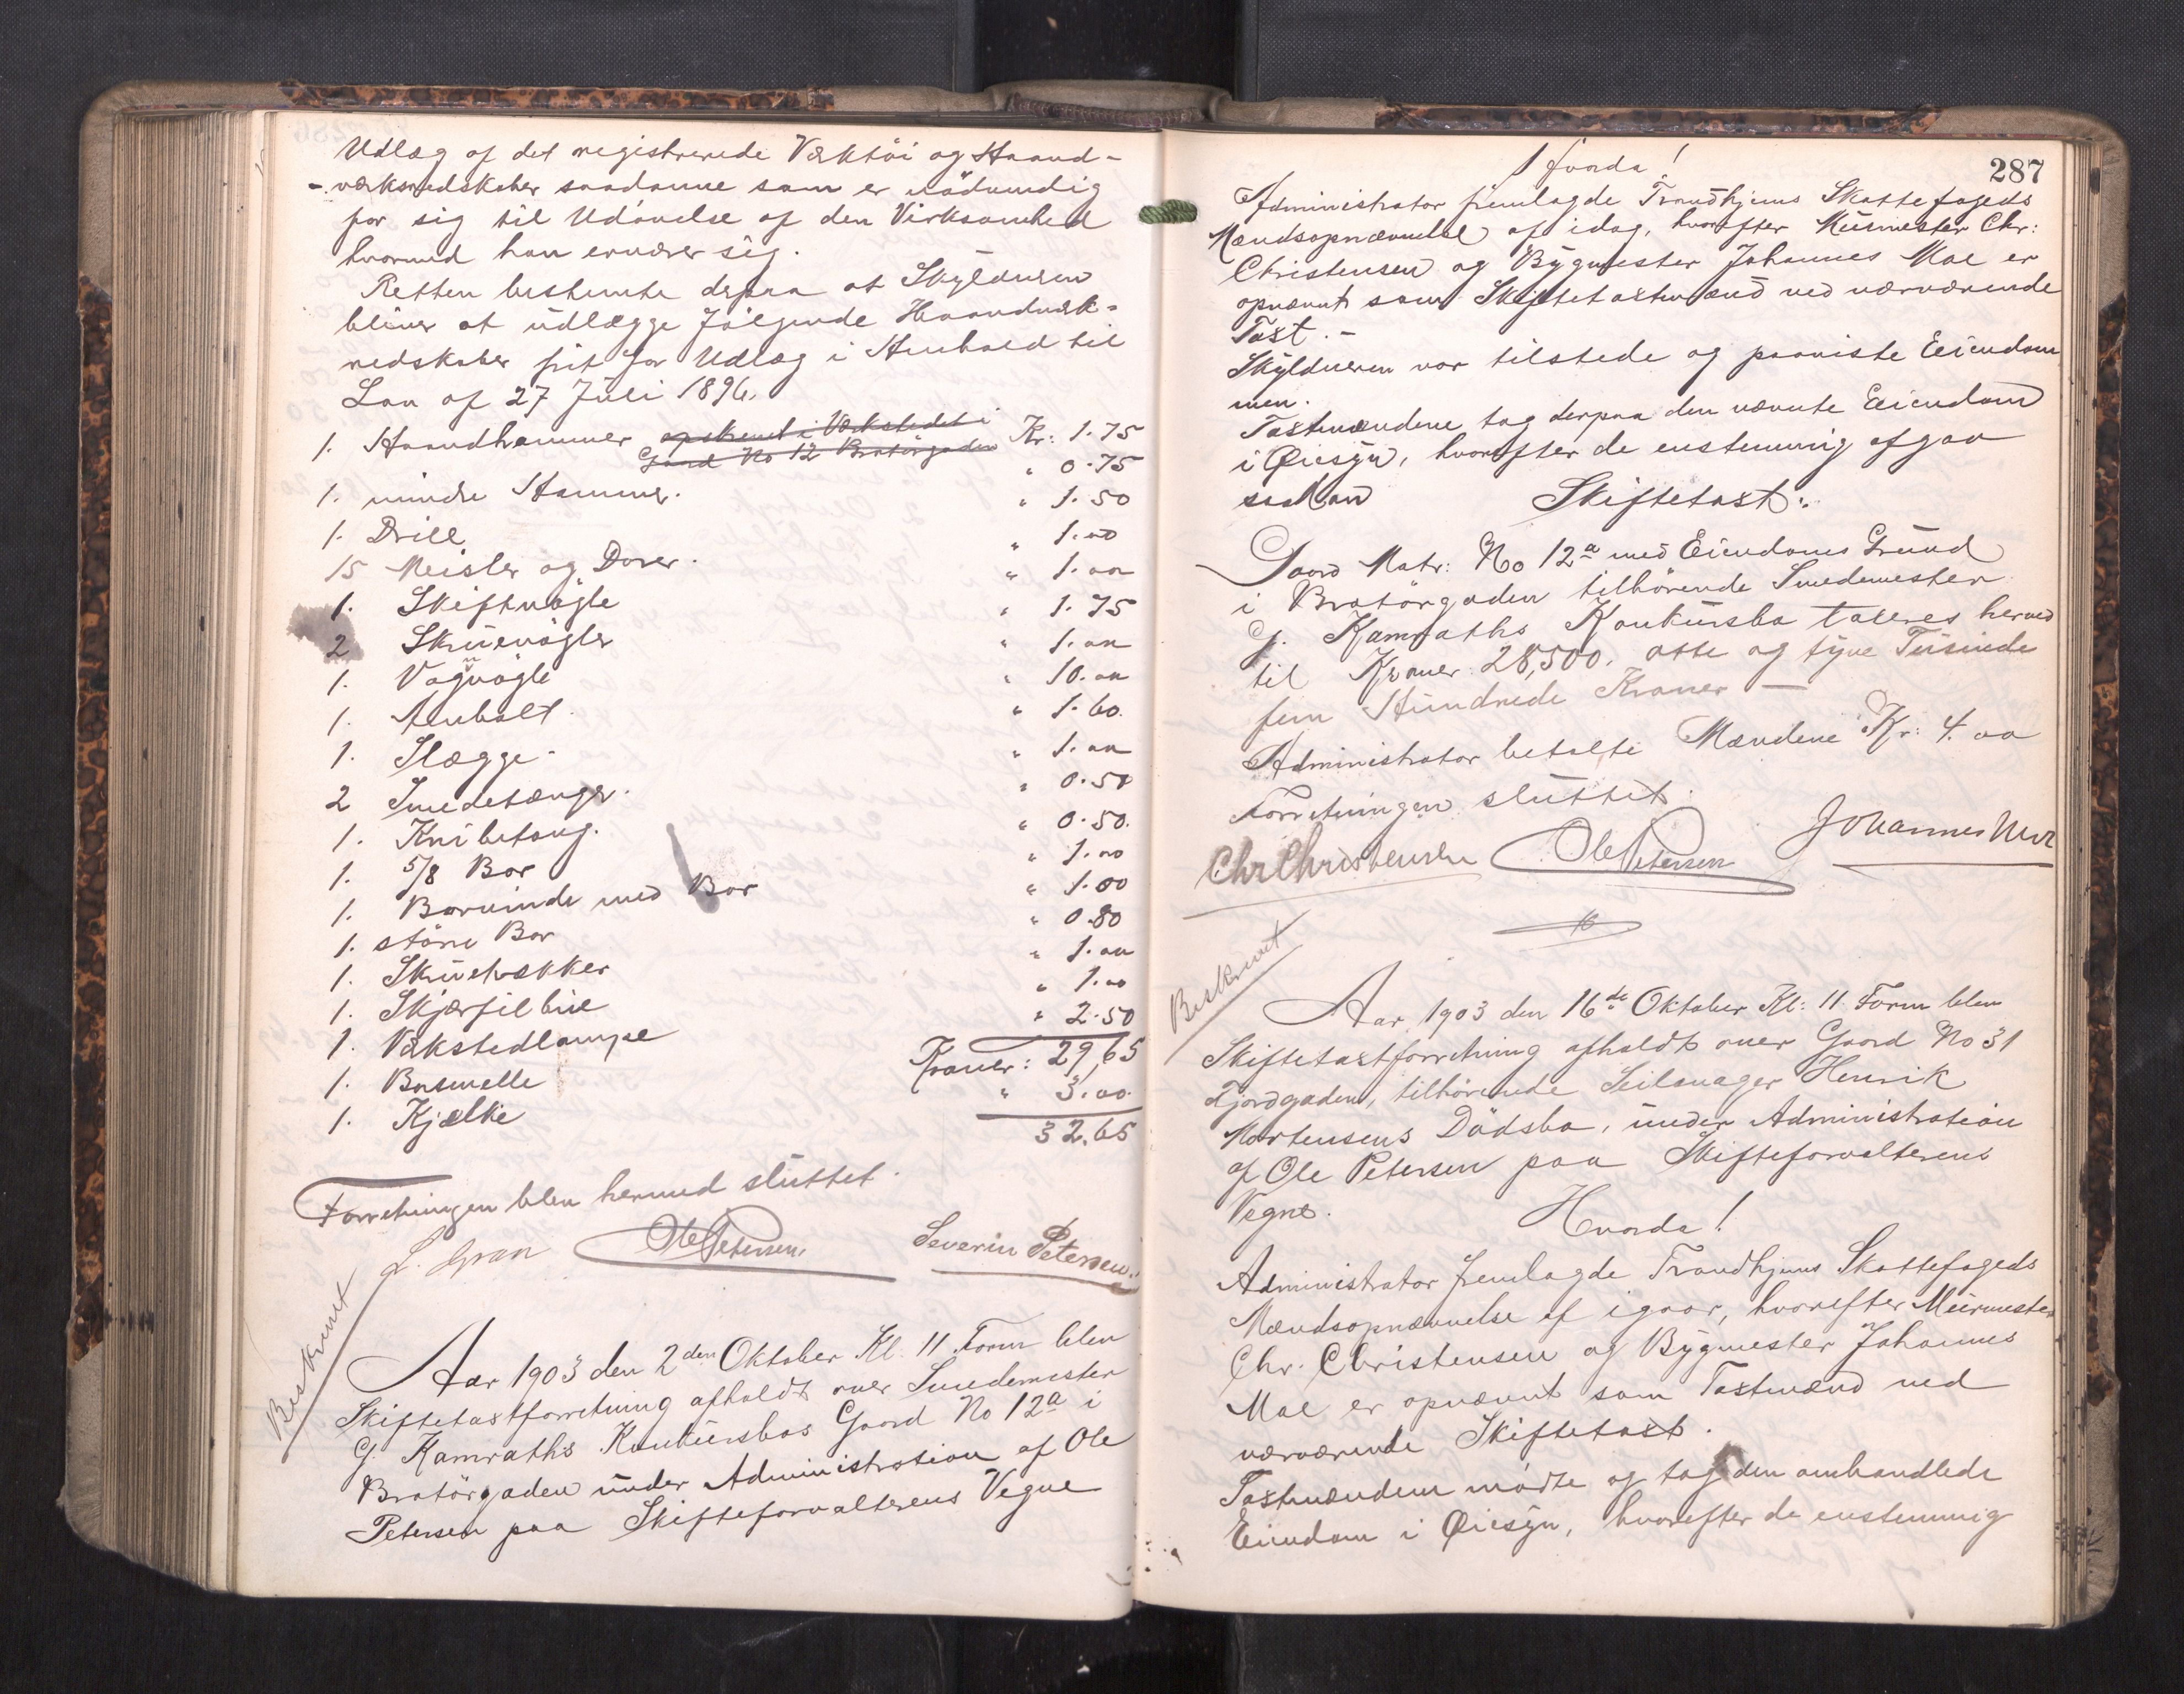 Udlæg af det registrerede Værktöi og Haand-
-værksredskaber saadanne som er nödvendig
for sig til Udövelse af den Virksomhed
hvormed han ernærer sig.
Retten bestemte derpaa at Skyldneren
bliver at udlægge fölgende Haandværk-
redskaber frit for Udlæg i Henhold til
Lov af 27 Juli 1896.
1. Haandhammer opskrevet i Værkstedet i Kr: 1.75
Gaard No 12 Bratörgaden
1. mindre Hammer. " 0.75
1. Drill " 1.50
15 Meisler og Dorer. " 1.00
1. Skiftnögle " 1.00
2 Skruenögler " 1.75
1. Vognnögle " 1.00
1. Ambolt " 10.00
1. Slægge " 1.60.
2 Smedetænger. " 1.00
1. Knibetang. " 0.50
1. 5/8 Bor " 0.50.
1. Borvinde med Bor " 1.00
1. störe Bor " 1.00
1. Skruetrækker " 0.80
1. Skjærfilbue " 1.00
1. Værkstedlampe " 1.00
1. Basmelle " 2.50
Kroner: 29,65
1. Kjælke " 3.00.
32.65
Forretningen blev hermed sluttet.
L. Gran Ole Petersen Severin Petersen.
Beskrevet
Aar 1903 den 2den Oktober Kl. 11 Form blev
Skiftetaxtforretning afholdt over Smedemester
G. Kamraths Konkursbos Gaard No 12a i
Bratörgaden under Administration af Ole
Petersen paa Skifteforvalterens Vegne
287
Hvorda!
Administrator fremlagde Trondhjems Skattefogeds
Mændsopnævnelse af idag, hvorefter Murmester Chr:
Christensen og Bygmester Johannes Moe er
opnævnt som Skiftetaxtmænd ved nærværende
Taxt.-
Skyldneren var tilstede og paaviste Eiendom
men.
Taxtmændene tog derpaa den nævnte Eiendom
i Öiesyn, hvorefter de enstemmig afgav
saadan Skiftetaxt:
Gaard Matr: No 12a med Eiendoms Grund
i Bratörgaden tilhörende Smedemester
G. Kamraths Konkursbo taxeres herved
til Kroner 28,500. otte og tyve Tusinde
fem Hundrede Kroner —
Administrator betalte Mændene Kr: 4.00
Forretningen sluttet.
Chr Christensen Ole Petersen Johannes Moe
Beskrevet
Aar 1903 den 16de Oktober Kl: 11 Form blev
Skiftetaxtforretning afholdt over Gaard No 31
Fjordgaden, tilhörende Seilmager Henrik
Mortensens Dödsbo, under Administration
af Ole Petersen paa Skifteforvalterens
Vegne. Hvorda!
Administrator fremlagde Trondhjems Skattefogeds
Mændsopnævnelse af igaar, hvorefter Murmester
Chr. Christensen og Bygmester Johannes
Moe er opnævnt som Taxtmænd ved
nærværende Skiftetaxt.
Taxtmændene mödte og tog den omhandlede
Eiendom i Öiesyn, hvorefter de enstemmig